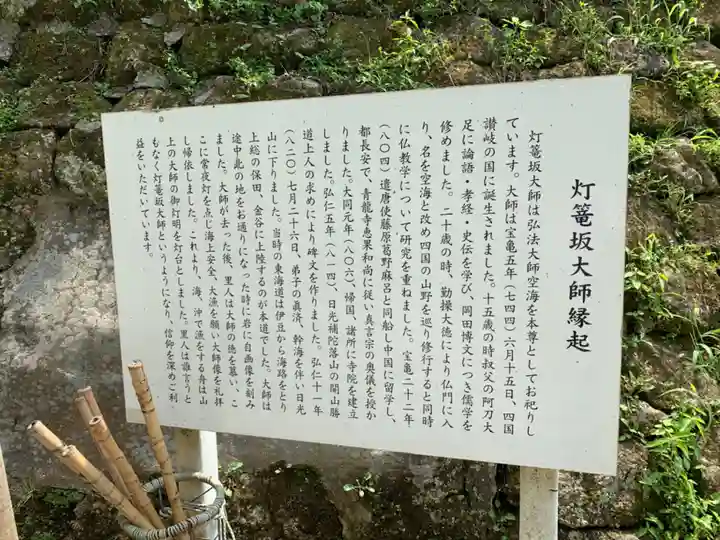 灯篭坂大師縁起
灯篭坂大師は弘法大師空海を本尊としてお祀りし
ています。大師は宝亀五年(七四四)六月十五日、四国
讃岐の国に誕生されました。十五歳の時叔父の阿刀大
足に論語・孝経・史伝を学び、岡田博文につき儒学を
修めました。二十歳の時、勤操大徳により仏門に入
り、名を空海と改め四国の山野を巡り修行すると同時
に仏教学について研究を重ねました。宝亀二十二年
(八〇四)遣唐使藤原葛野麻呂と同船し中国に留学し、
都長安で、青龍寺恵果和尚に従い真言宗の奥儀を授か
りました。大同元年(八〇六)、帰国、諸所に寺院を建立
しました。弘仁五年(八一四)、日光補陀落山の開山勝
道上人の求めにより碑文を作りました。弘仁十一年
(八二〇)七月二十六日、弟子の真済、幹海を伴い日光
山に下りました。当時の東海道は伊豆から海路をとり
上総の保田、金谷に上陸するのが本道でした。大師は
途中此の地をお通りになった時に岩に自画像を刻み
ました。大師が去った後、里人は大師の徳を慕い、こ
こに常夜灯を点じ海上安全、大漁を願い大師像を礼拝
し帰依しました。これより、海、沖で漁をする舟は山
上の大師の御灯明を灯台としました。里人は誰言うと
もなく灯篭坂大師というようになり、信仰を深めご利
益をいただいています。